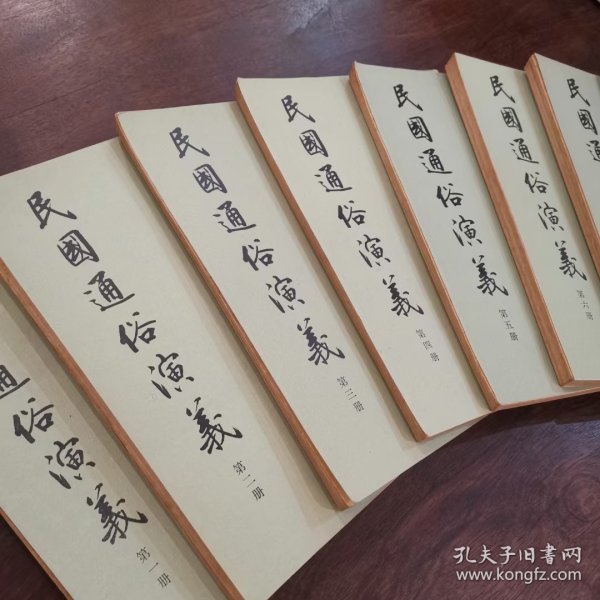 通俗演義
第一册
民國通俗演義
第二册
民國通俗演義
第三册
民國通俗演義
第四册
民國通俗演義
第五册
民國通俗演義
第六册
民國通
孔夫子旧书网
www.kongfz.com